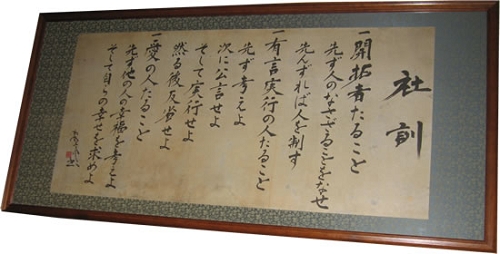 社訓
一開拓者たること
先ず人のなせざることをなせ
先んずれば人を制す
一有言実行の人たること
先ず考えよ
次に公言せよ
そして実行せよ
然る後反省せよ
一愛の人たること
先ず他の人の幸福を考えよ
そして自らの幸せを求めよ